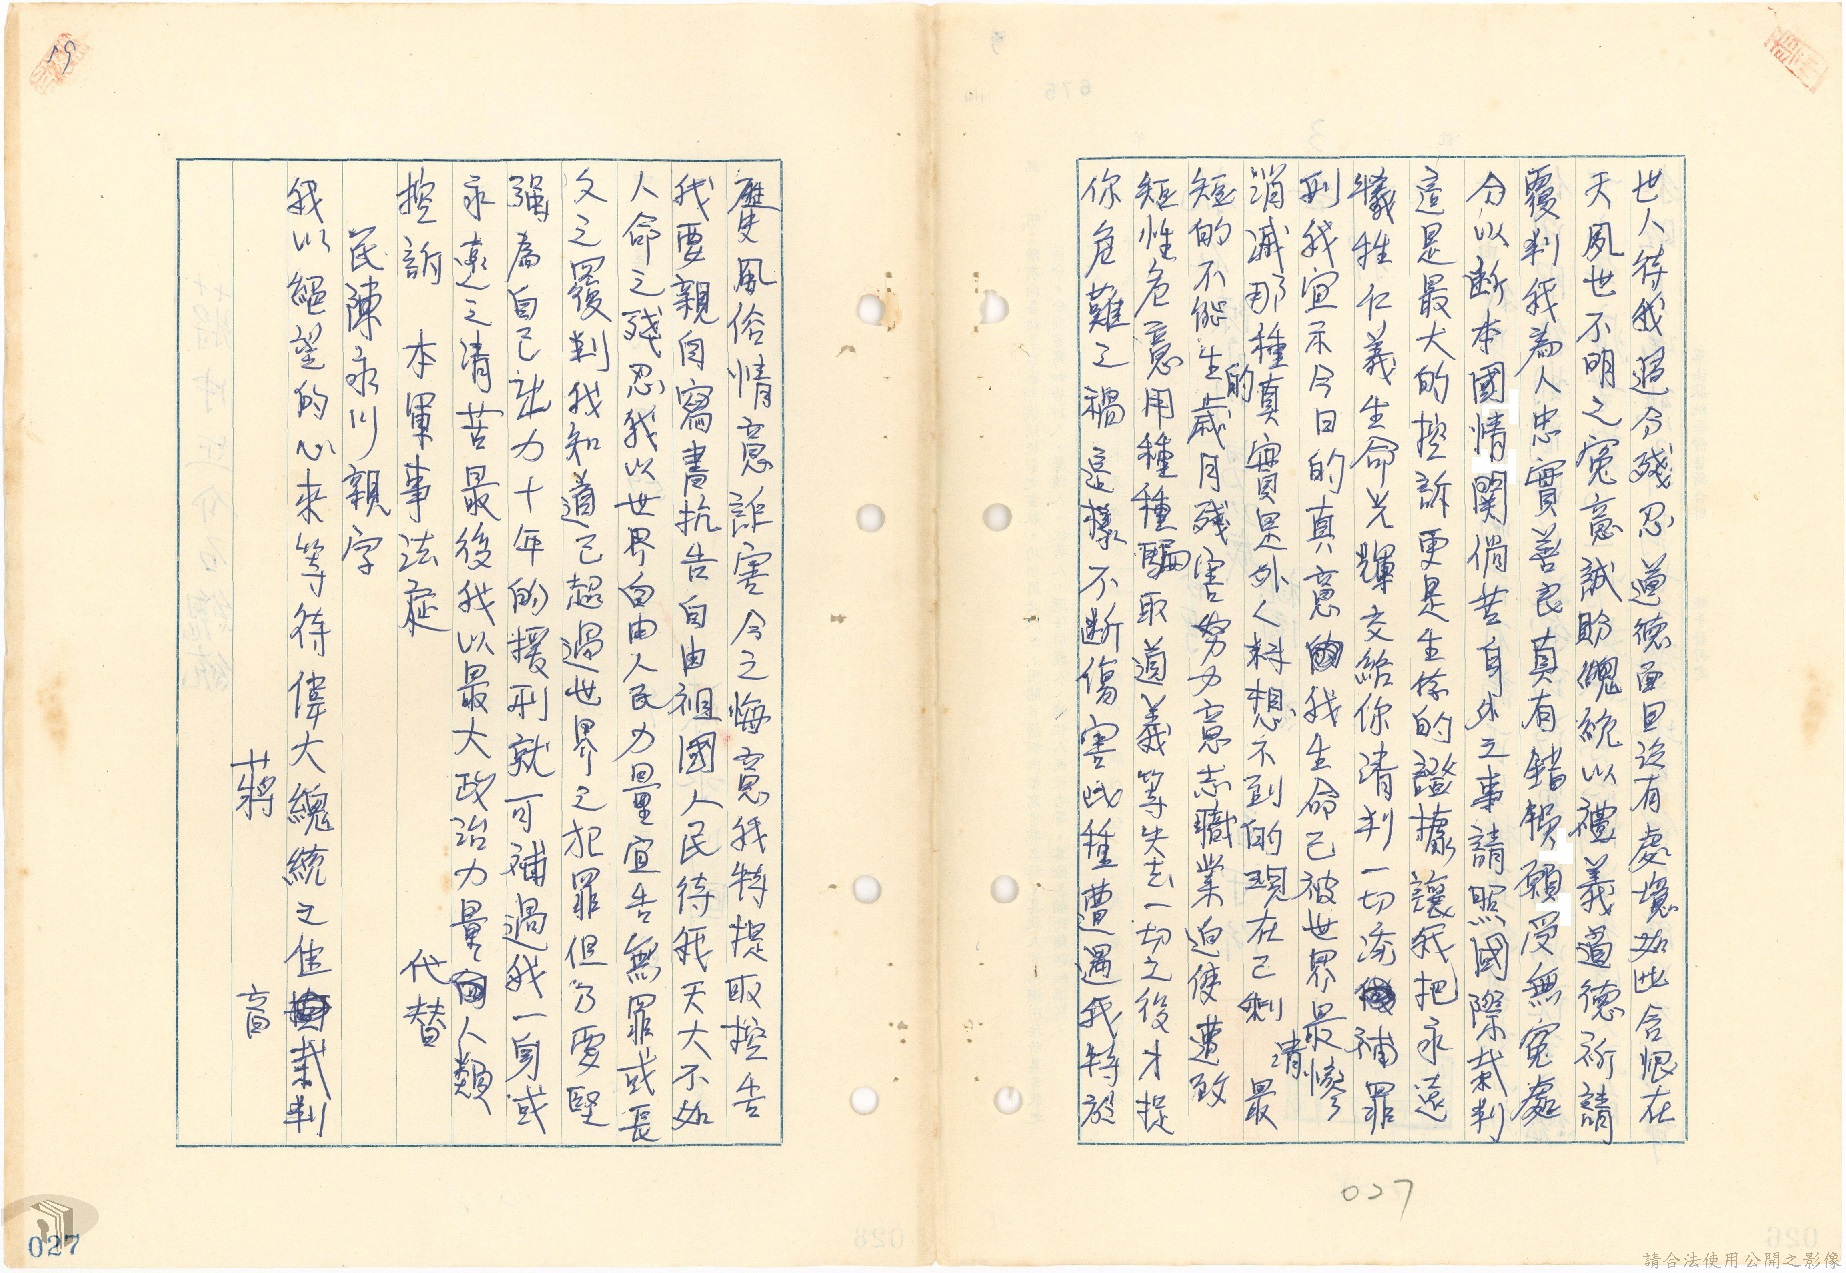 世人待我過分殘忍道德面目沒有處境如此含恨在
天夙世不明之冤意誠盼總統以禮義道德祈請
覆判我為人忠實善良真有錯誤願受無冤處
分以斷本國情関倘若身外之事請照國際裁判
這是最大的控訴更是生命的證據讓我把永遠
犧牲仁義生命光輝交給你清判一切流補罪
刑我宣示今日的真意我生命已被世界最慘
消滅那種真實是外人料想不到的現在已剩 清 最
短的不能生的歲月殘害努力意志職業迫使遭致
短性危意用種種騙取道義等失去一切之後才提
你危難之禍這樣不斷傷害此種遭遇我特說
027
歷史風俗情意詐害今之悔意我特提取控告
我要親自寫書抗告自由祖國人民待我天大不如
人命之殘忍我以世界自由人民力量宣告無罪或長
久之覆判我知道已超過世界之犯罪但乃要堅
強為自己出力十年的援刑就可補過我一身或
永遠之清苦最後我以最大政治力量人類
控訴 本軍事法庭 代替
民陳永川親字
我以絕望的心來等待偉大總統之佳裁判
蔣 育
19
027
請合法使用公開之影像